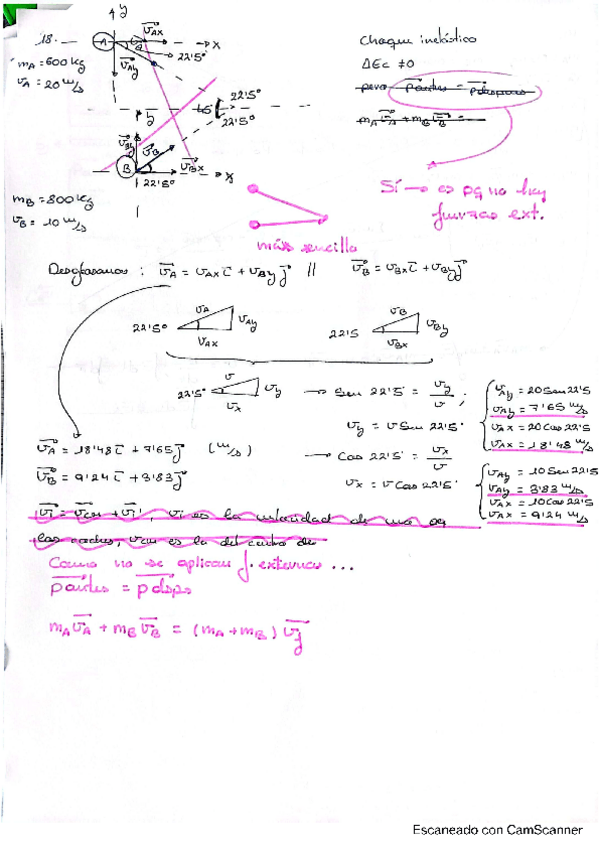 18.-
y
A
v_Ax
x
m_A = 600 kg
v_A = 20 m/s
v_Ay
22'5º
45º
22'5º
22'5º
y
v_By
v_B
B
v_Bx
x
22'5º
m_B = 800 kg
v_B = 10 m/s
Choque inelástico
ΔEc ≠ 0
pero p antes = p despues
m_A v_A + m_B v_B =
Sí → es pq no hay
fuerzas ext.
más sencilla
Desglosamos : v_A = v_Ax i + v_By j // v_B = v_Bx i + v_By j
22'5º v_A v_Ay v_Ax
22'5 v_B v_By v_Bx
22'5º v v_y v_x → Sen 22'5 = v_y / v ;
v_y = v Sen 22'5
→ Cos 22'5 = v_x / v
v_x = v Cos 22'5
v_Ay = 20 Sen 22'5
v_Ay = 7'65 m/s
v_Ax = 20 Cos 22'5
v_Ax = 18'48 m/s
v_Ay = 10 Sen 22'5
v_Ay = 3'83 m/s
v_Ax = 10 Cos 22'5
v_Ax = 9'24 m/s
v_A = 18'48 i + 7'65 j (m/s)
v_B = 9'24 i + 3'83 j
v_i = v_cm + v_i', v_i es la velocidad de una de
las, v_cm es la del centro de
Como no se aplican f. externas ...
p antes = p dsps
m_A v_A + m_B v_B = (m_A + m_B) v_f
Escaneado con CamScanner